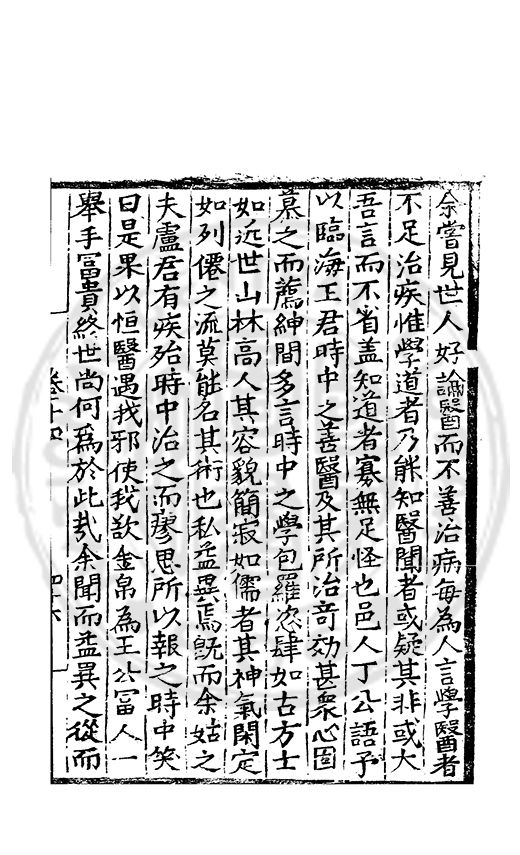 余嘗見世人好論醫而不善治病每為人言學醫者
不足治疾惟學道者乃能知醫聞者或疑其非或大
吾言而不省盖知道者寡無足怪也邑人丁公語予
以臨海王君時中之善醫及其所治奇効甚衆心啚
慕之而薦紳間多言時中之學包羅恣肆如古方士
如近世山林高人其容貌簡寂如儒者其神氣閑定
如列僊之流莫能名其術也私益異焉旣而余姑之
夫盧君有疾殆時中治之而瘳思所以報之時中笑
曰是果以恒醫遇我邪使我欲金帛為王公富人一
舉手冨貴終世尚何爲於此哉余聞而益異之從而
卷十四
四十六